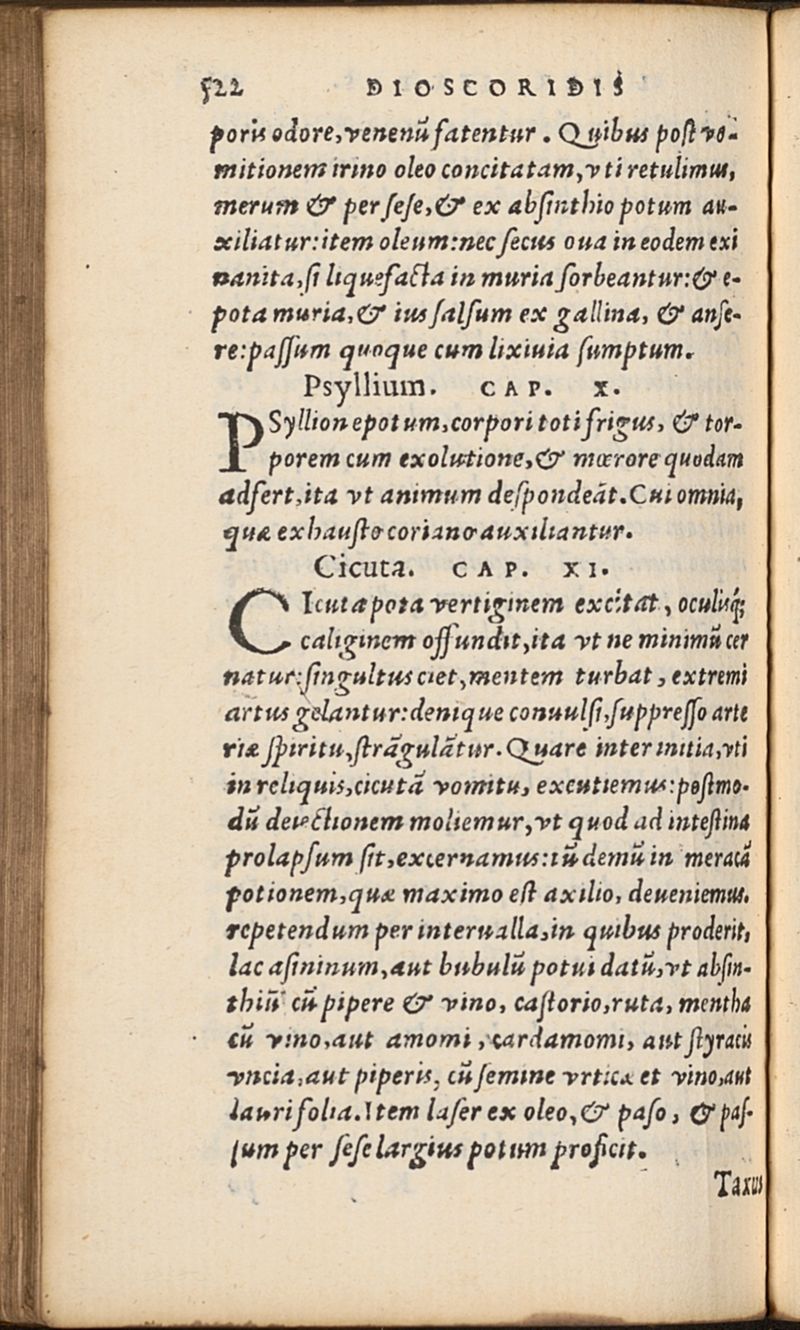 522 DIOSCORIDIS
poris odore, venenũ fatentur. Quibus post vo-
mitionem irino oleo concitatam, vti retulimus,
merum & per sese, & ex absinthio potum au-
xiliatur: item oleum: nec secus oua in eodem exi
nanita, si liquefacta in muria sorbeantur: & e-
pota muria, & ius salsum ex gallina, & anse-
re: passum quoque cum lixiuia sumptum.
Psyllium. CAP. X.
PSyllion epotum, corpori toti frigus, & tor-
porem cum exolutione, & mœrore quodam
adfert, ita vt animum despondeãt. Cui omnia,
quæ exhausto coriano auxiliantur.
Cicuta. CAP. XI.
CIcuta pota vertiginem excitat, oculisq́;
caliginem offundit, ita vt ne minimũ cer
natur: singultus ciet, mentem turbat, extremi
artus gelantur: denique conuulsi, suppresso arte
riæ spiritu, strãgulãtur. Quare inter initia, vti
in reliquis, cicutã vomitu, excutiemus: postmo-
dũ deiectionem moliemur, vt quod ad intestina
prolapsum sit, excernamus: tũ demũ in meracã
potionem, quæ maximo est axilio, deueniemus.
repetendum per interualla, in quibus proderit,
lac asininum, aut bubulũ potui datũ, vt absin-
thiũ cũ pipere & vino, castorio, ruta, mentha
cũ vino, aut amomi, cardamomi, aut styracis
vncia, aut piperis, cũ semine vrticæ et vino, aut
lauri folia. Item laser ex oleo, & paso, & pas-
sum per sese largius potum proficit.
Taxus